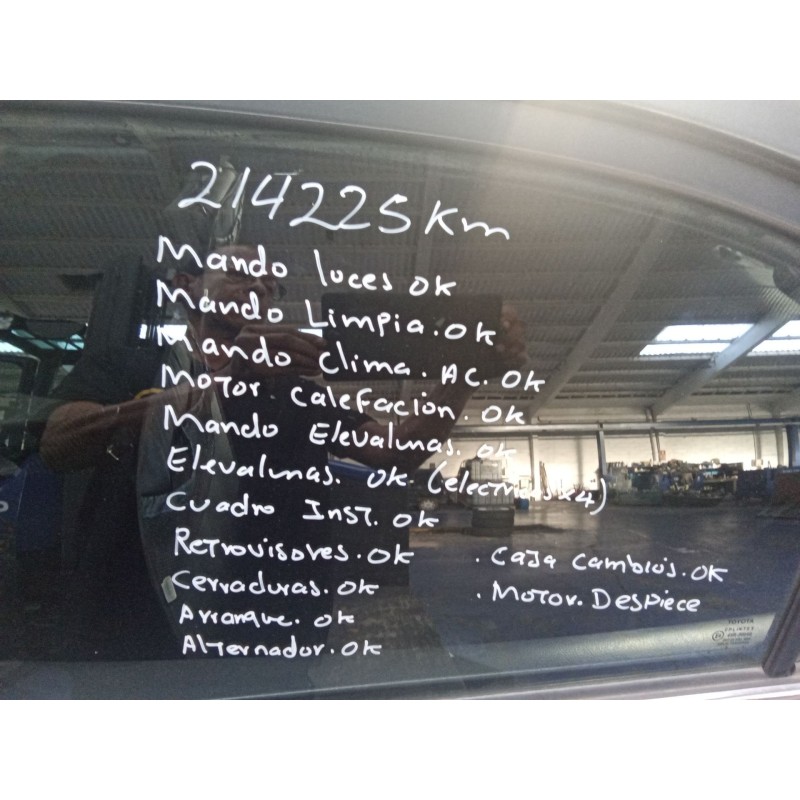 214225 Km
Mando luces OK
Mando Limpia. OK
Mando clima. AC. OK
Motor. Calefacion. OK
Mando Elevalunas. OK
Elevalunas. OK. (electricos x4)
Cuadro Inst. OK
Retrovisores. OK
Cerraduras. OK
Arranque. OK
Alternador. OK
. Caja Cambios. OK
. Motor. Despiece
TOYOTA